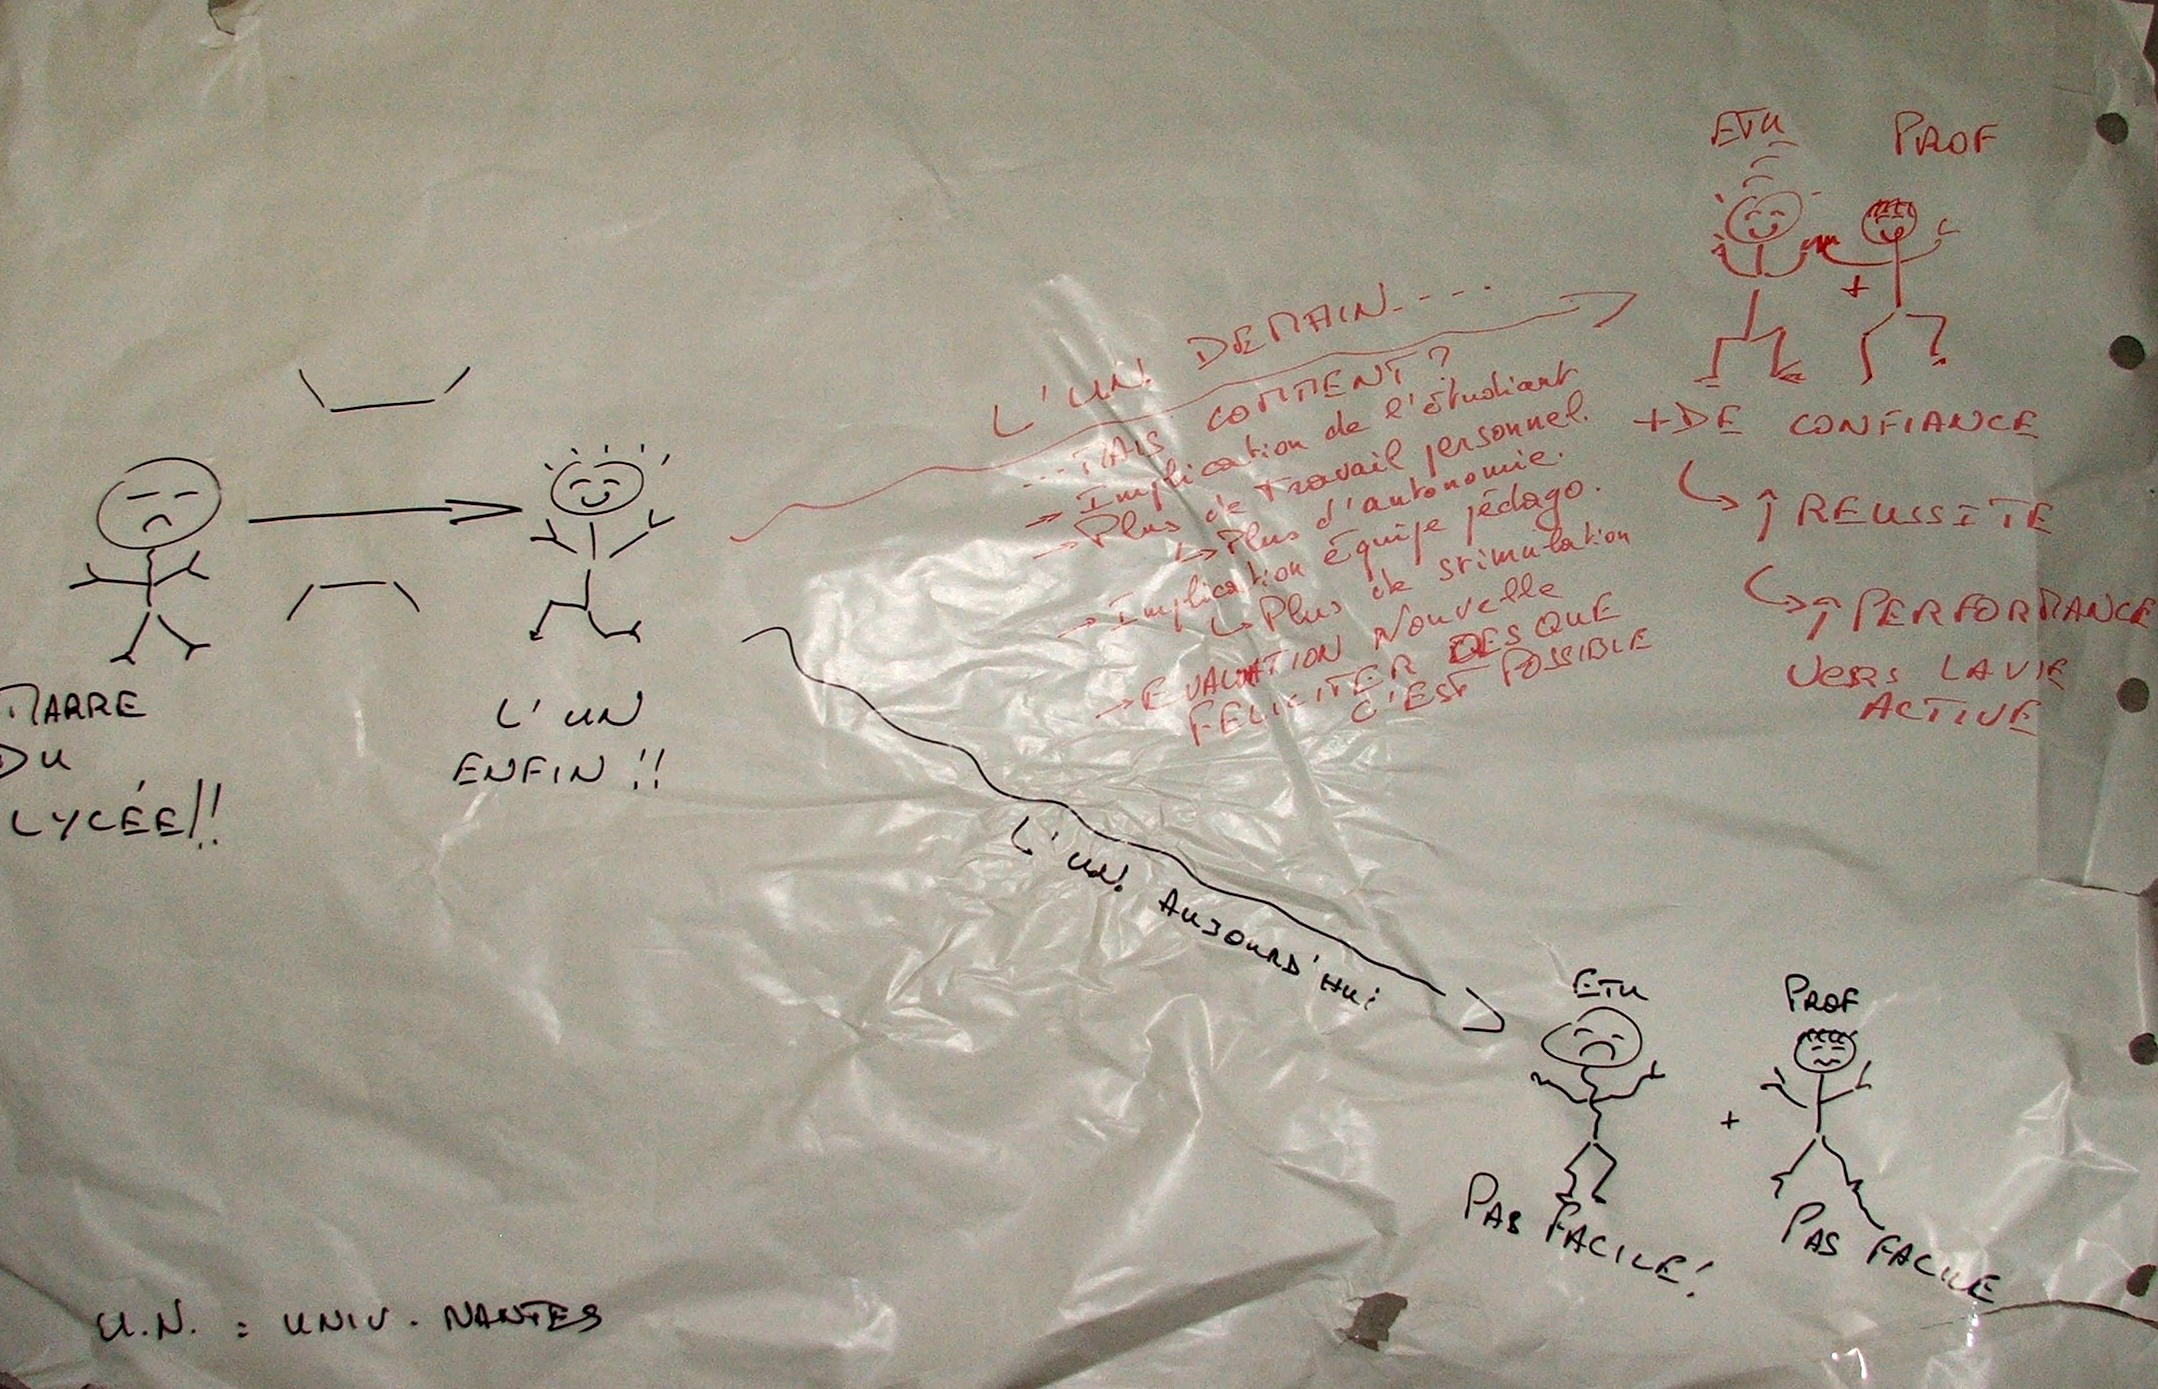 MARRE
DU
LYCÉE!!
L'UN
ENFIN!!
L'U.N. DEMAIN....
...MAIS COMMENT?
→ Implication de l'étudiant
→ Plus de travail personnel.
↳ Plus d'autonomie.
→ Implication équipe pédago.
↳ Plus de stimulation
→ EVALUATION Nouvelle
FELICITER DES QUE
C'EST POSSIBLE
ETU PROF
+
+ DE CONFIANCE
↳ ↑ REUSSITE
↳ ↑ PERFORMANCE
VERS LA VIE
ACTIVE
L'U.N. AUJOURD'HUI
ETU PROF
+
PAS FACILE!
PAS FACILE
U.N. : UNIV. NANTES